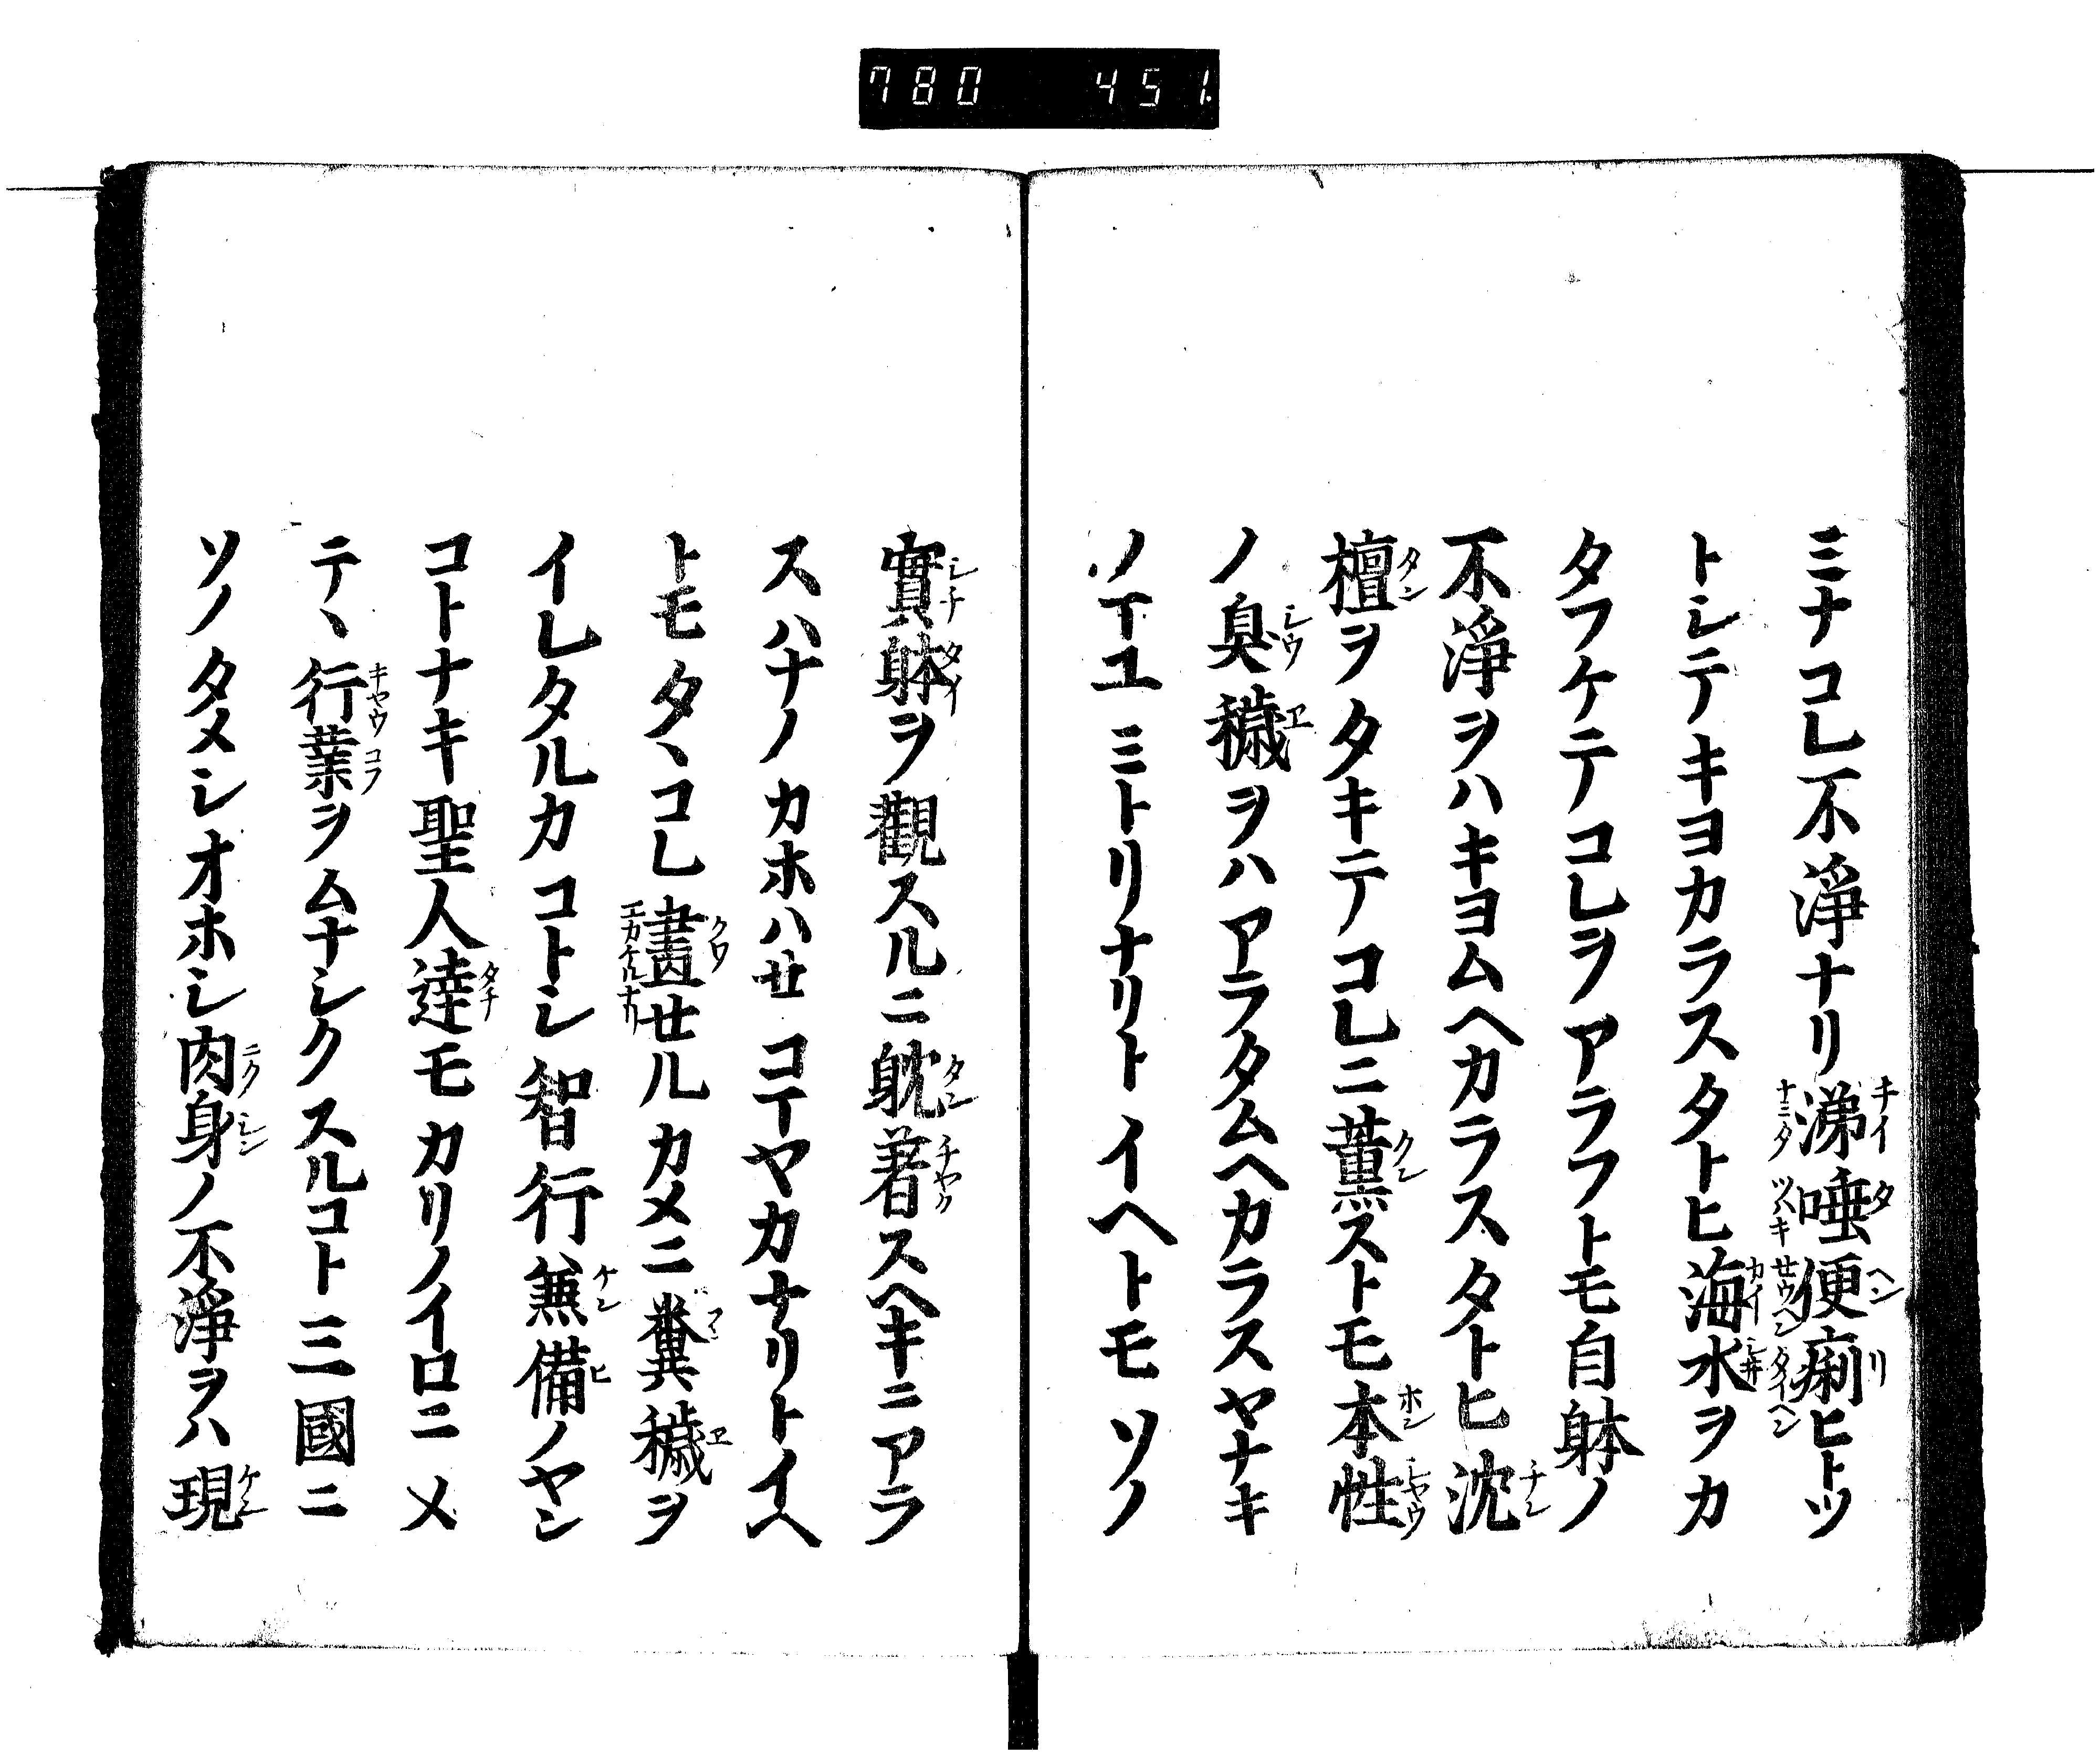 780 451.
ミナコレ不淨ナリ涕唾便痢ヒトツ
トシテキヨカラスタトヒ海水ヲカ
タフケテコレヲアラフトモ自躰ノ
不淨ヲハキヨムヘカラスタトヒ沈
檀ヲタキテコレニ薫ストモ本性
ノ臭穢ヲハアラタムヘカラスヤナキ
ノマユミトリナリトイヘトモソノ
實躰ヲ觀スルニ躭著スヘキニアラ
スハナノカホハせコマヤカナリトイヘ
トモタヽコレ畫せルカメニ糞穢ヲ
イレタルカコトシ智行兼備ノヤン
コトナキ聖人達モカリノイロニメ
テヽ行業ヲムナシクスルコト三國ニ
ソノタメシオホシ肉身ノ不淨ヲハ現